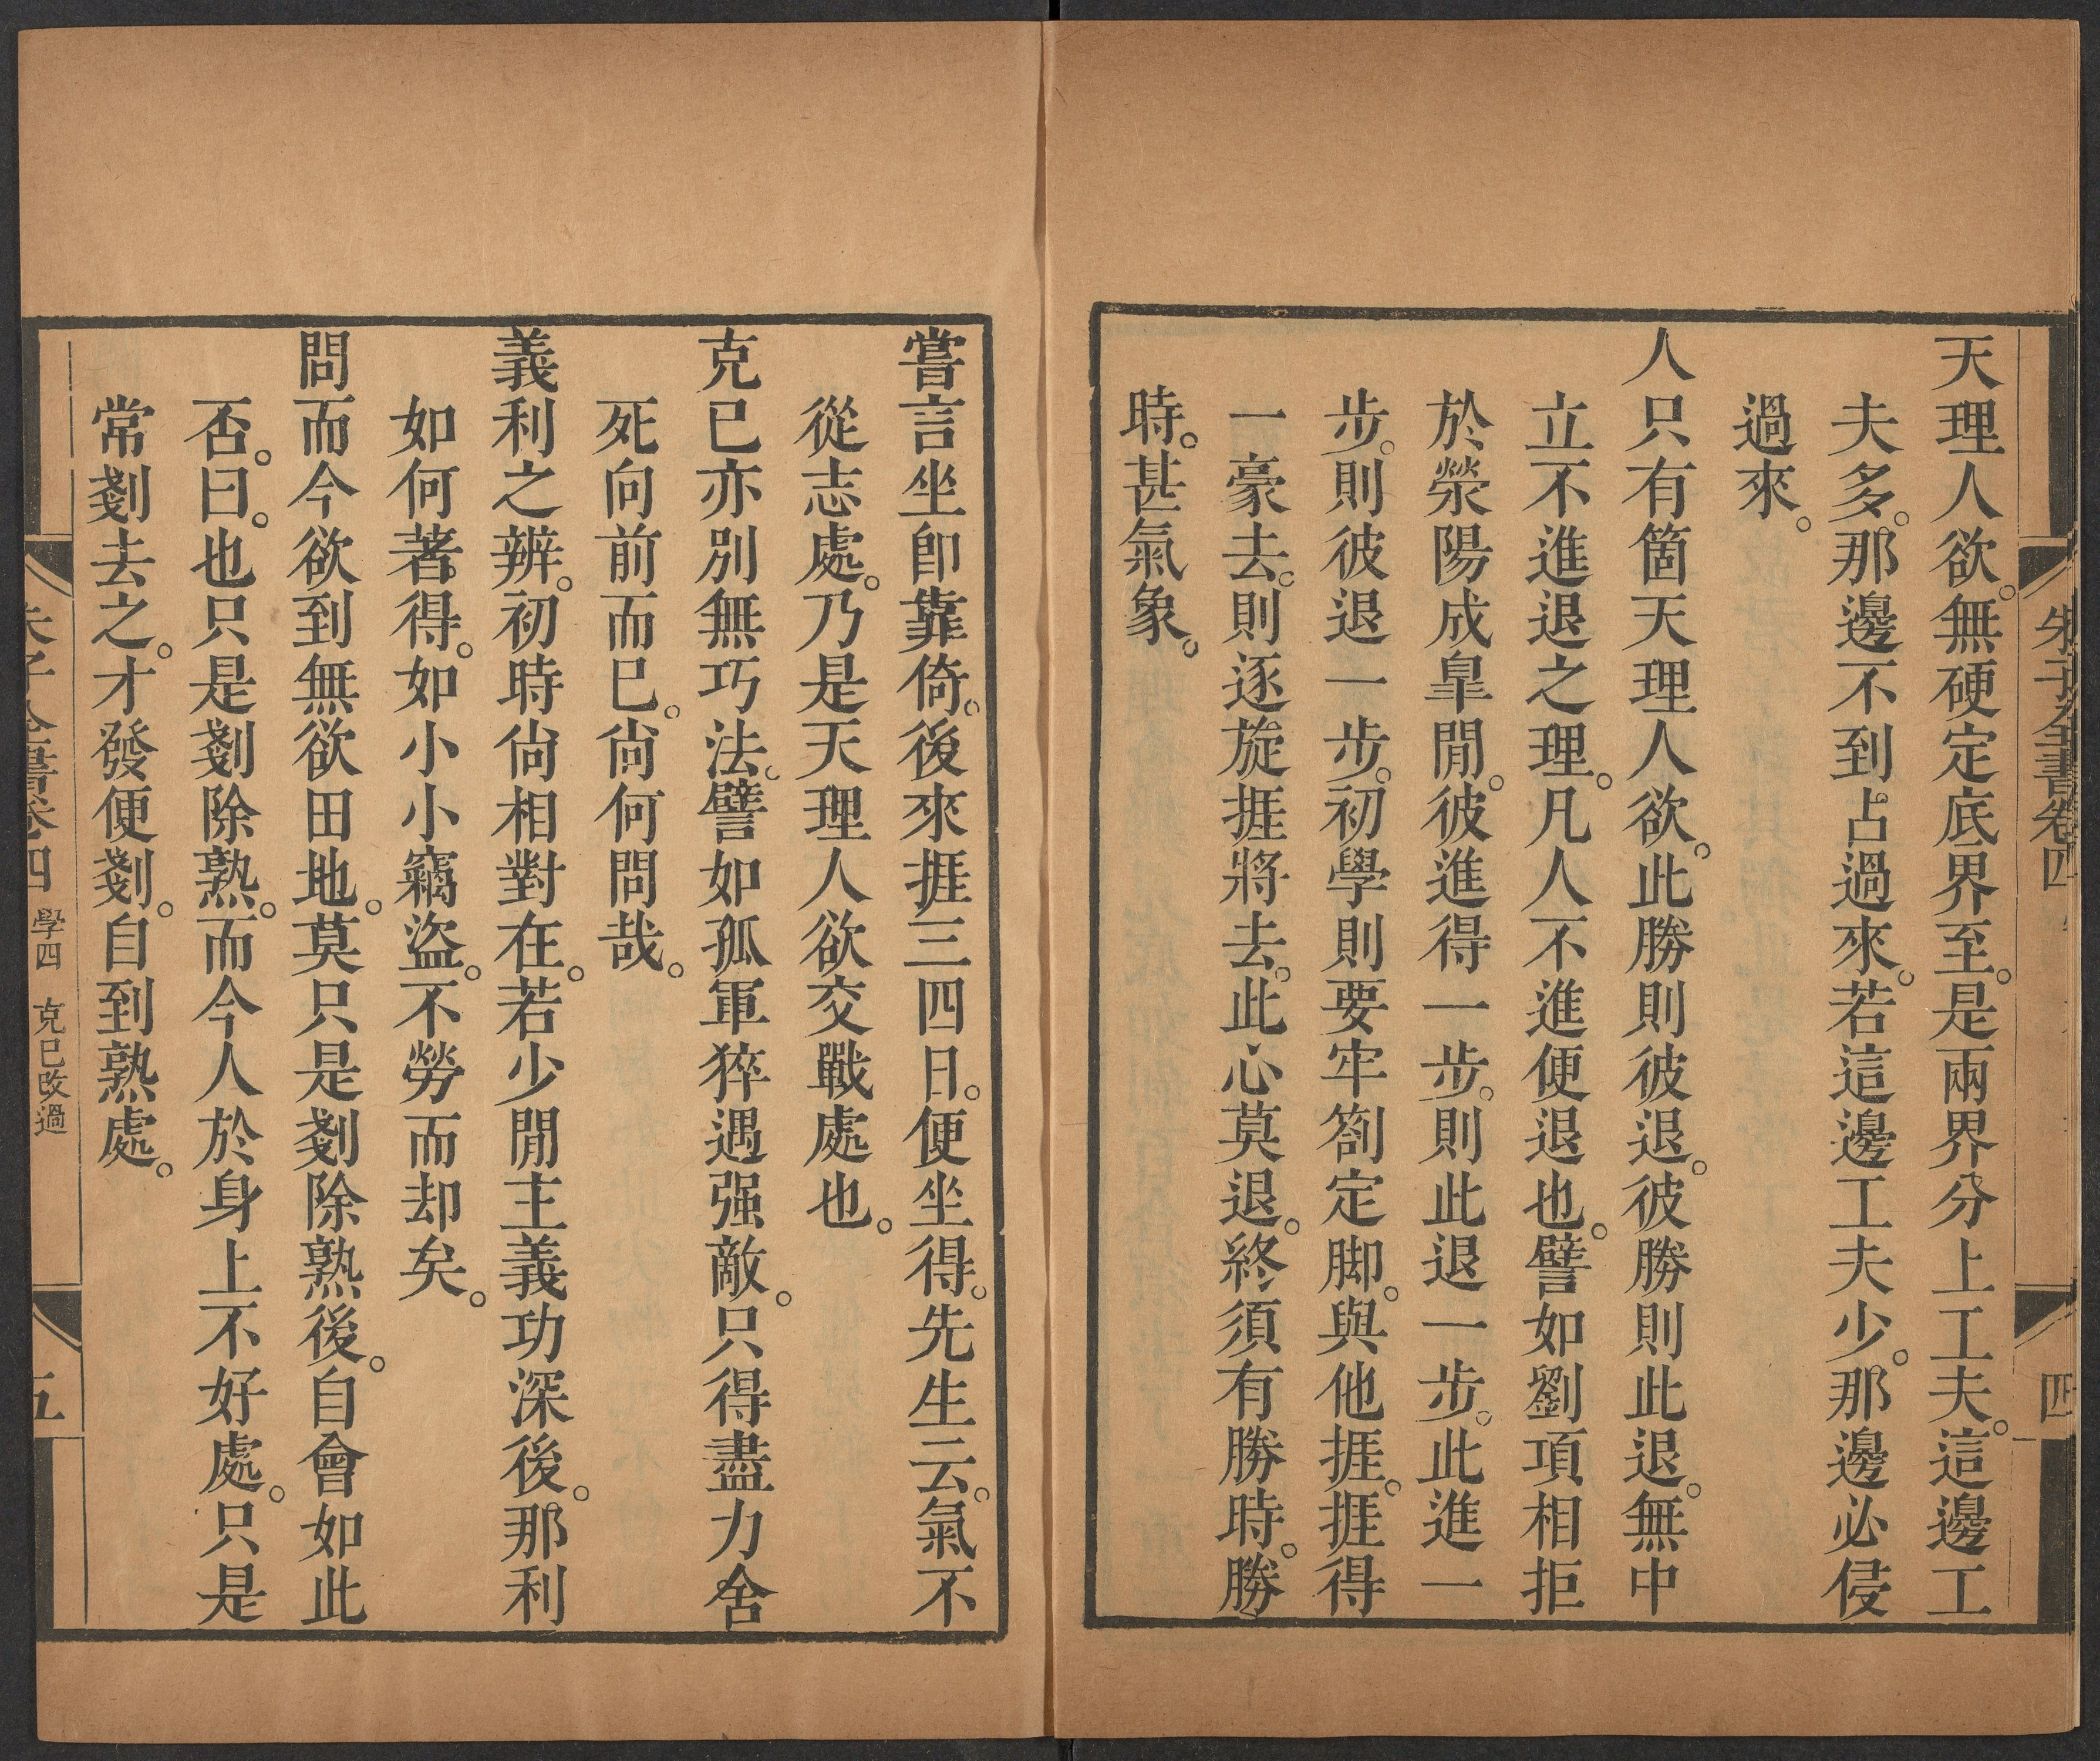 朱子全書卷四
四
天理人欲。無硬定底界至。是兩界分上工夫。這邊工
夫多。那邊不到占過來。若這邊工夫少。那邊必侵
過來。
人只有箇天理人欲。此勝則彼退。彼勝則此退。無中
立不進退之理。凡人不進便退也。譬如劉項相拒
於滎陽成臯閒。彼進得一步。則此退一步。此進一
步。則彼退一步。初學則要牢劄定脚。與他捱。捱得
一豪去。則逐旋捱將去。此心莫退。終須有勝時。勝
時。甚氣象。
嘗言坐卽靠倚。後來捱三四日。便坐得。先生云。氣不
從志處。乃是天理人欲交戰處也。
克已亦別無巧法。譬如孤軍猝遇强敵。只得盡力舍
死向前而已。尙何問哉。
義利之辨。初時尙相對在。若少閒主義功深後。那利
如何著得。如小小竊盜。不勞而却矣。
問而今欲到無欲田地。莫只是剗除熟後。自會如此
否。曰。也只是剗除熟。而今人於身上不好處。只是
常剗去之。才發便剗。自到熟處。
朱子全書卷四 學四 克已改過
五